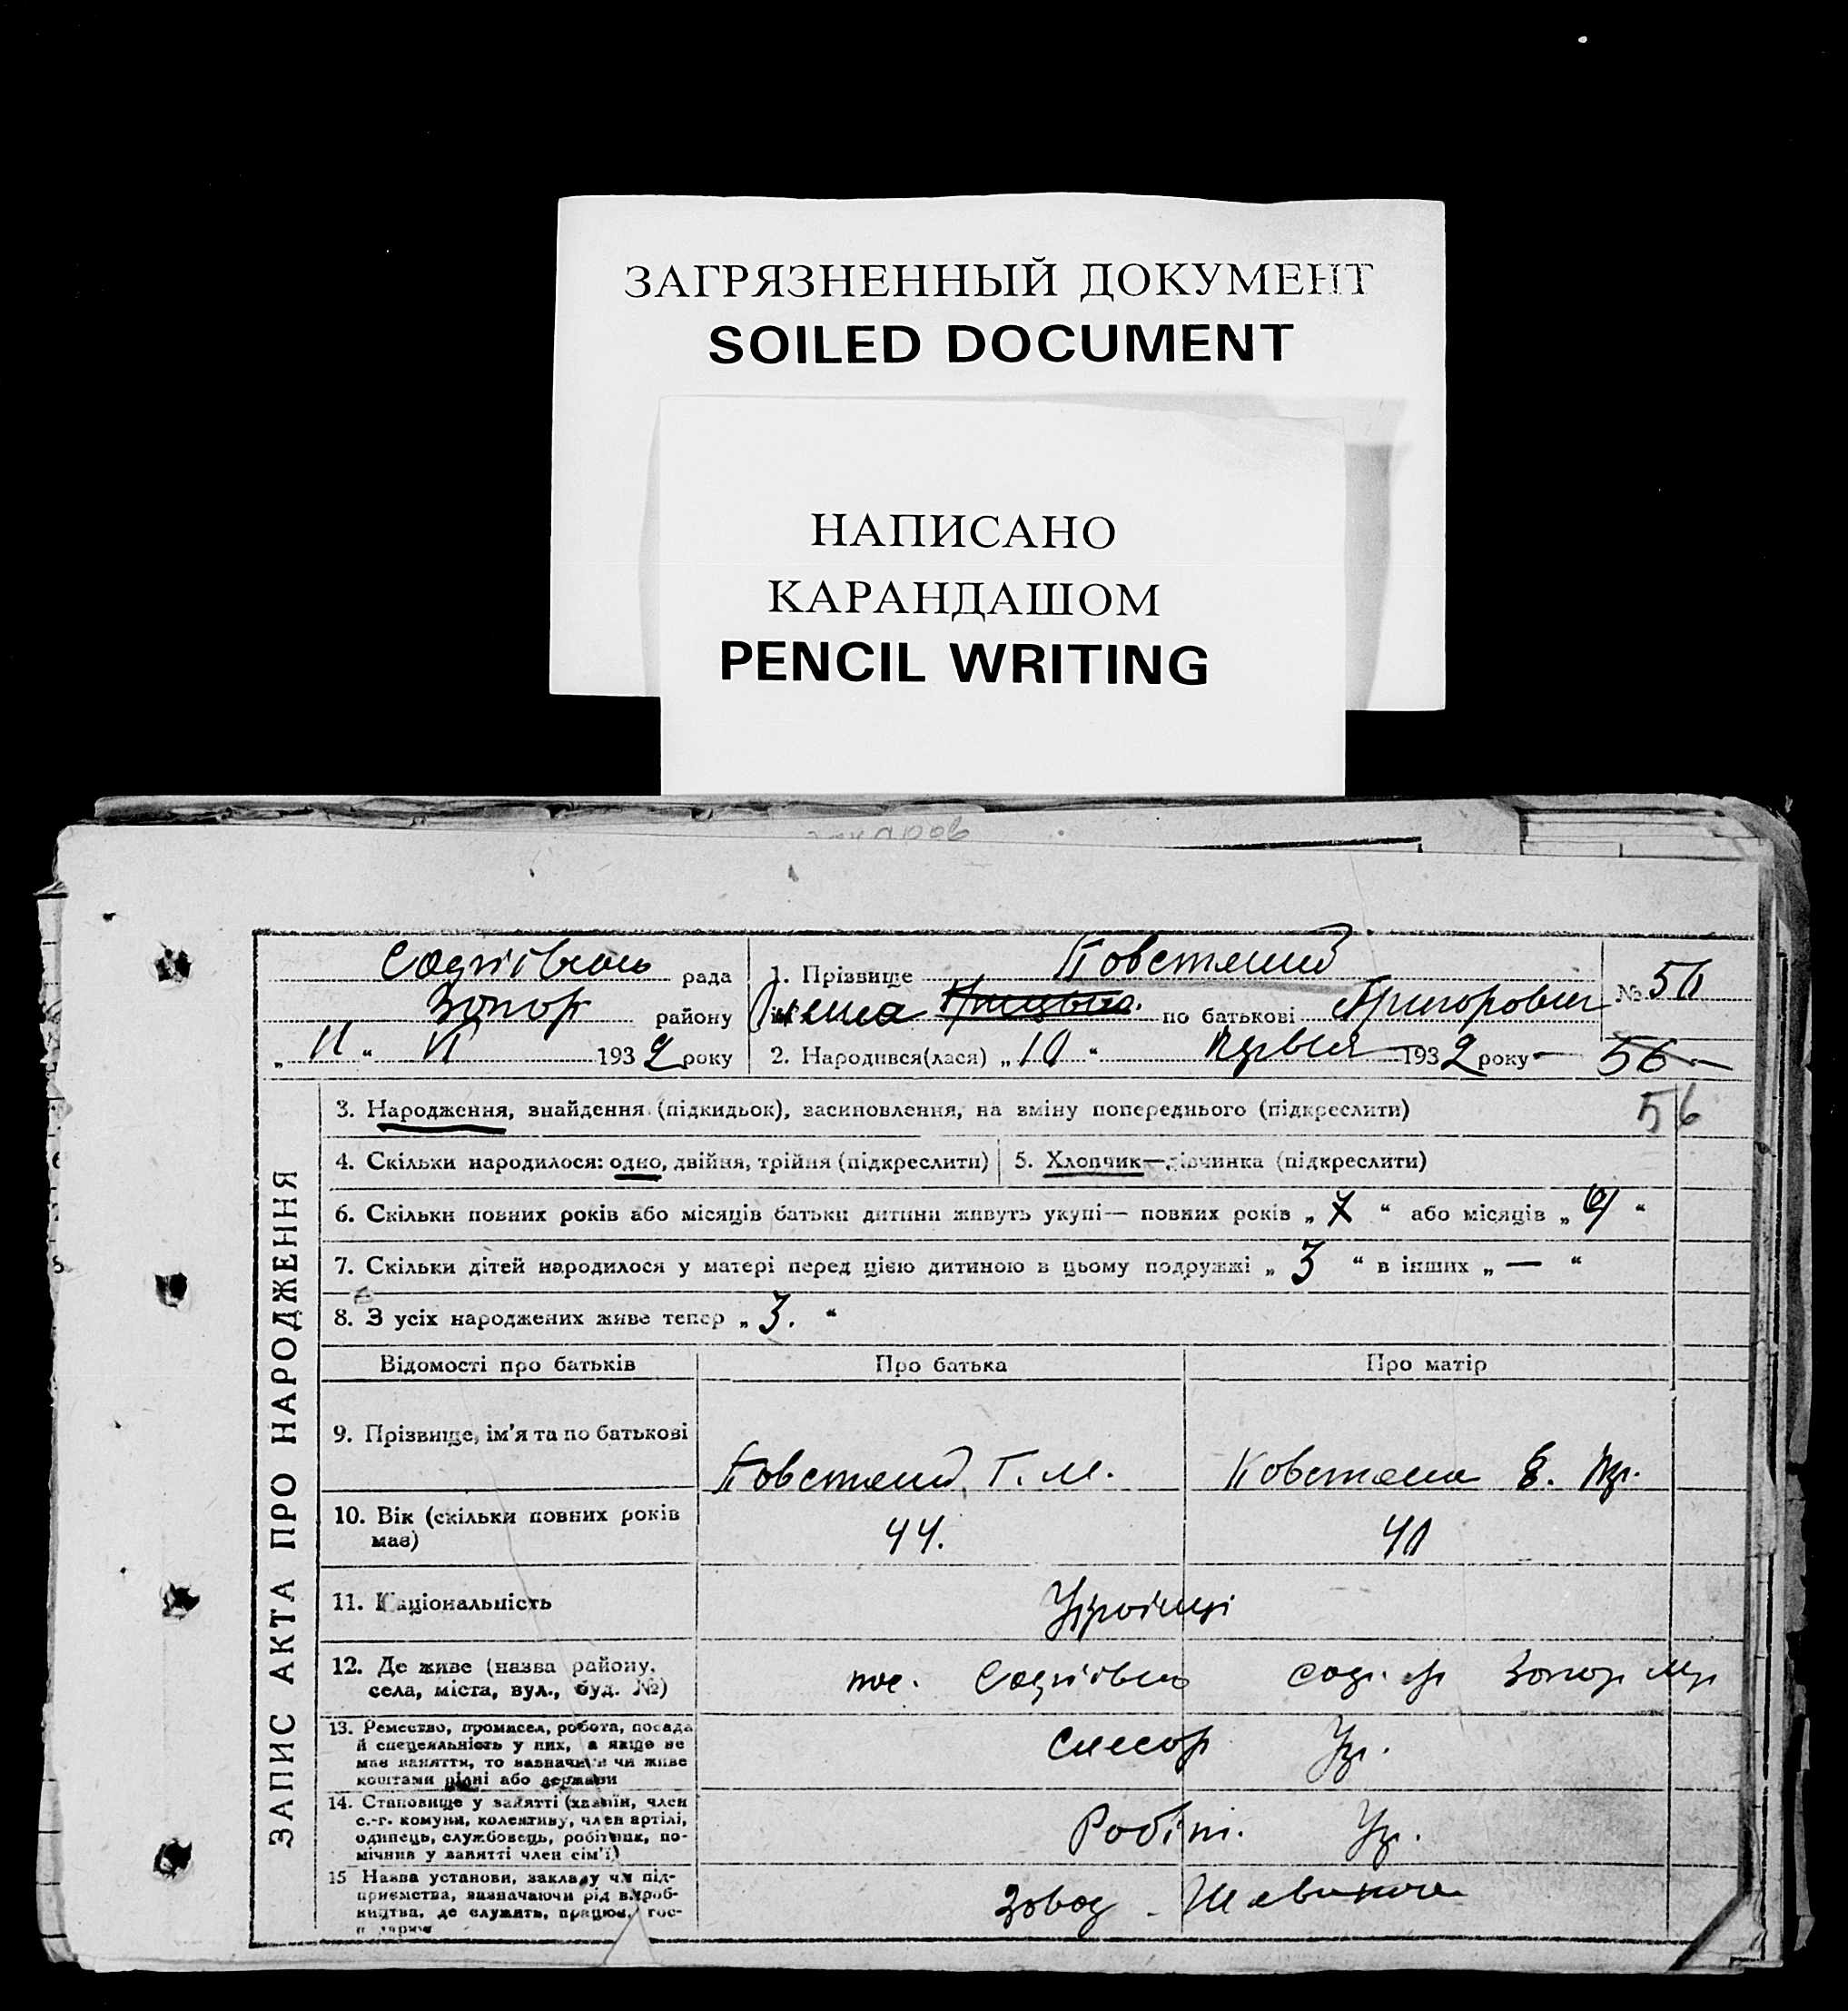 ЗАГРЯЗНЕННЫЙ ДОКУМЕНТ
SOILED DOCUMENT
НАПИСАНО
КАРАНДАШОМ
PENCIL WRITING
рада
1. Прізвище Ковстяний
№ 5
району
по батькові Григорович
" 193 2 року
2. Народився(лася) „ 10 “ 193 2 року
56
3. Народження, знайдення (підкидьок), засиновлення, на зміну попереднього (підкреслити)
56
4. Скільки народилося: одно, двійня, трійня (підкреслити)
5. Хлопчик—дівчинка (підкреслити)
6. Скільки повних років або місяців батьки дитини живуть укупі— повних років „ “ або місяців „ “
7. Скільки дітей народилося у матері перед цією дитиною в цьому подружжі „ 3 “ в інших „ — “
8. З усіх народжених живе тепер „ 3. “
ЗАПИС АКТА ПРО НАРОДЖЕННЯ
Відомості про батьків
Про батька
Про матір
9. Прізвище, ім'я та по батькові
Ковстяний, Г. М.
Ковстяна
10. Вік (скільки повних років
має)
44.
40
11. Національність
Українці
12. Де живе (назва району,
села, міста, вул., буд. №)
пос.
13. Ремество, промисел, робота, посада
й спецеяльність у них, а якщо не
має заняття, то зазначити чи живе
коштами рідні або держави
Слесор
14. Становище у занятті (хазяїн, член
с.-г. комуни, колективу, член артілі,
одинець, службовець, робітник, по-
мічник у занятті член сім'ї)
Робітн.
15 Назва установи, закладу чи під-
приємства, зазначаючи рід вироб-
ництва, де служить, працює, гос-
подарює
Завод